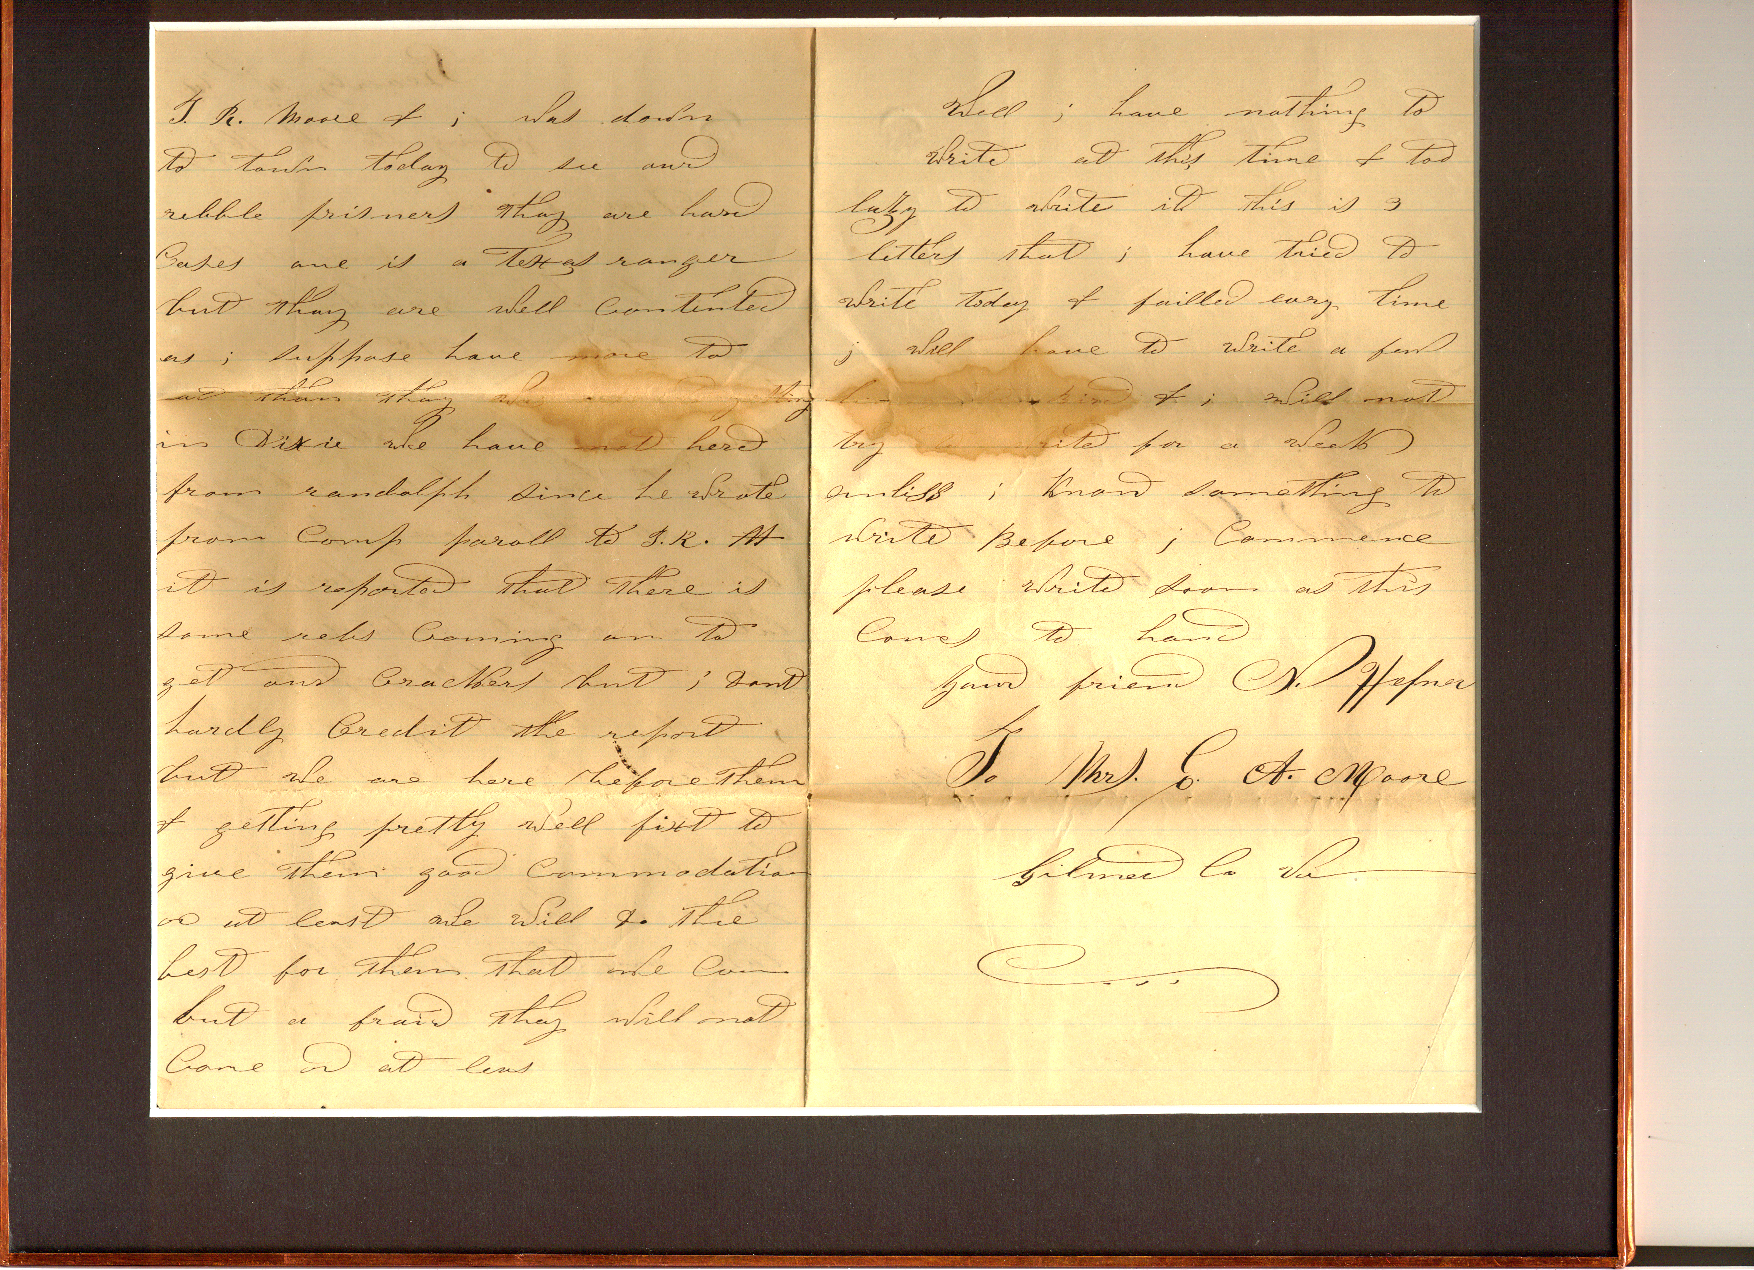 T. R. Moore & i was down
to town today to see our
rebble prisners thay are hard
Cases one is a Texas ranger
but thay are well Contented
as i suppose have more to
eat than thay
in Dixie we have not herd
from randolph since he wrote
from Camp paroll to T. R. M
it is reported that there is
some rebs Coming on to
get our Crackers but i dont
hardly Credit the report
but we are here before them
& getting pretty well fixt to
give them good Commodation
or at least we will do the
best for them that we Can
but a fraid thay will not
Come or at leas
Well i have nothing to
write at this time & too
lazy to write it this is 3
letters that i have tried to
write today & failled evry time
i will have to write a few
& i will not
try to write for a week
unliss i know something to
write Before i Commence
please write soon as this
Comes to hand
your friend N. Hefner
To Mrs. C. A. Moore
Gilmer Co Va